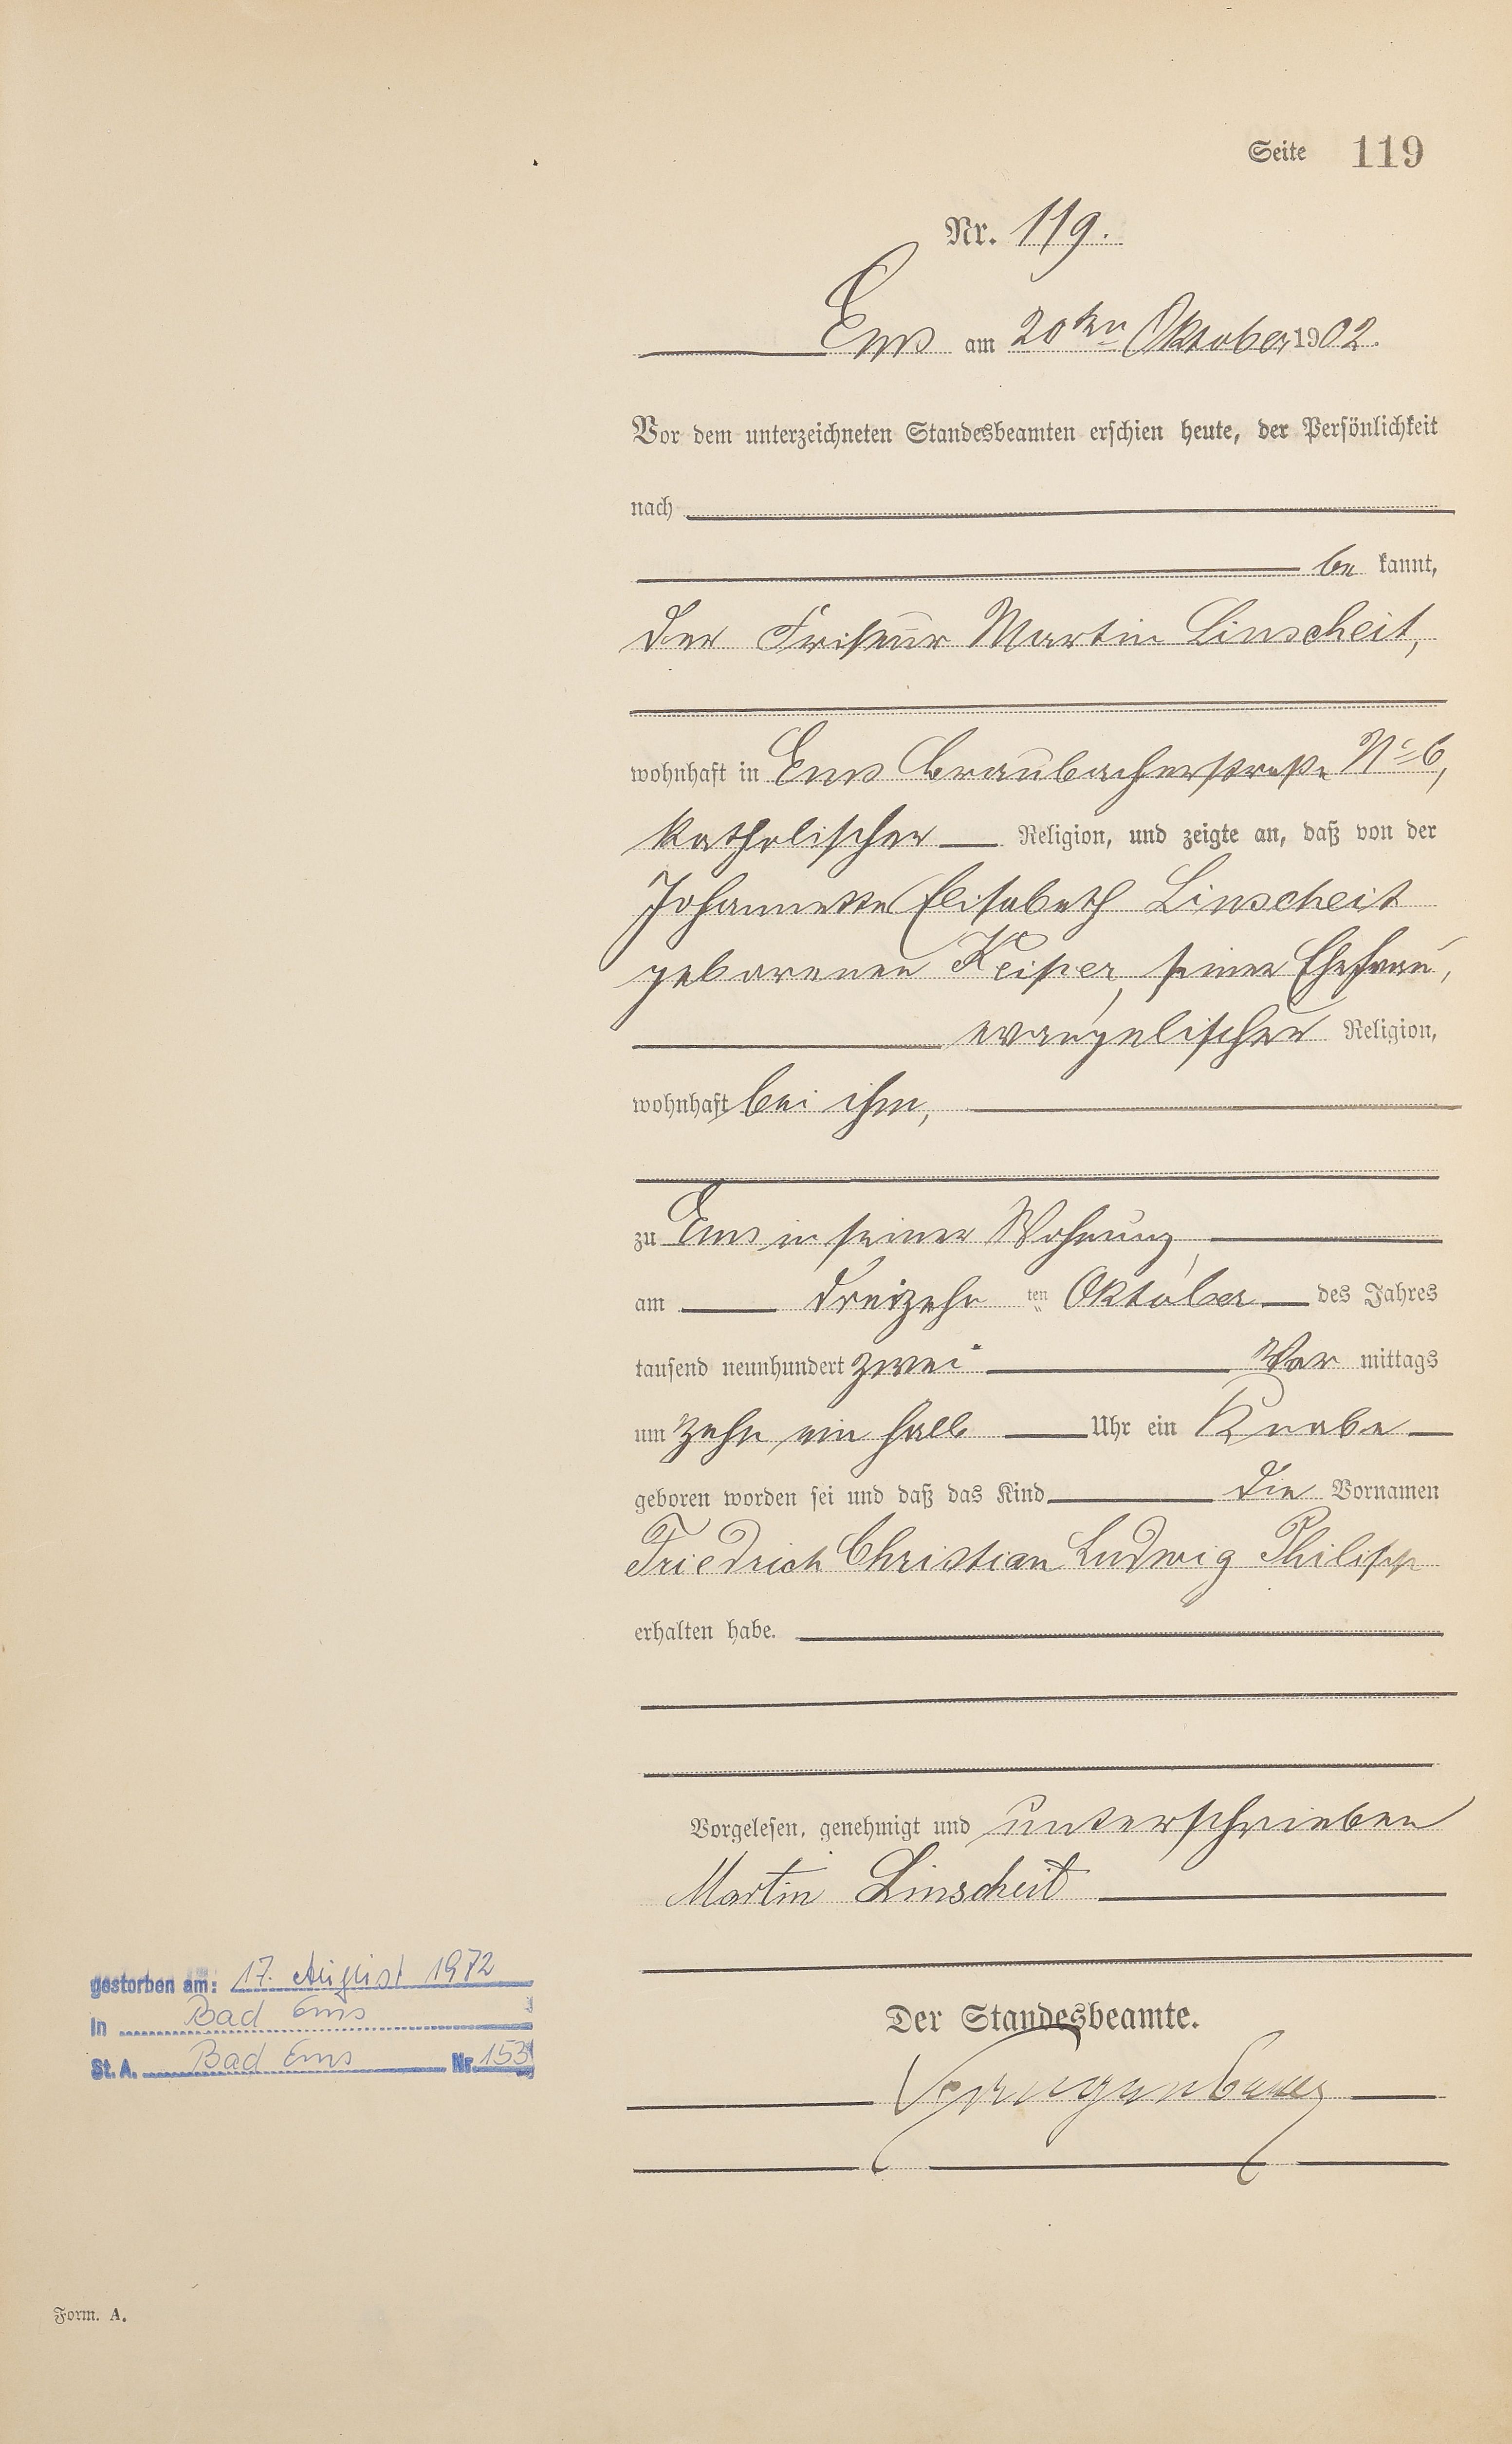 Seite 119
Nr. 119.
Ems am 20ten Oktober 1902.
Vor dem unterzeichneten Standesbeamten erschien heute, der Persönlichkeit
nach
be kannt,
der Friseur Martin Linscheit,
wohnhaft in Ems Braubacherstraße No 6,
katholischer Religion, und zeigte an, daß von der
Johannette Elisabeth Linscheit
geborenen Keiper, seiner Ehefrau,
evangelischer Religion,
wohnhaft bei ihm,
zu Ems in seiner Wohnung,
am dreizehn ten Oktober des Jahres
tausend neunhundert zwei Vor mittags
um zehn ein halb Uhr ein Knabe
geboren worden sei und daß das Kind die Vornamen
Friedrich Christian Ludwig Philipp
erhalten habe.
Vorgelesen, genehmigt und unterschrieben
Martin Linscheit
gestorben am: 17. August 1972
in Bad Ems
St. A. Bad Ems Nr. 153
Der Standesbeamte.
Form. A.